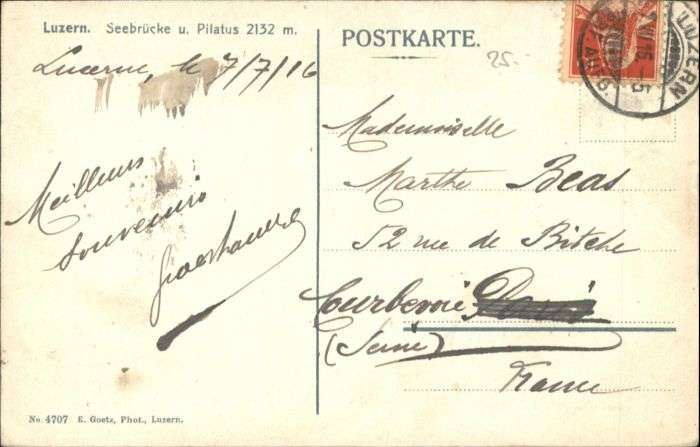 Luzern. Seebrücke u. Pilatus 2132 m.
Lucerne, le 7/7/16
Meilleurs
souvenirs
POSTKARTE.
25.-
LUZERN
Mademoiselle
Marthe Beas
52 rue de Bitche
Courbevoie Paris
(Seine)
France
No. 4707 E. Goetz, Phot., Luzern.